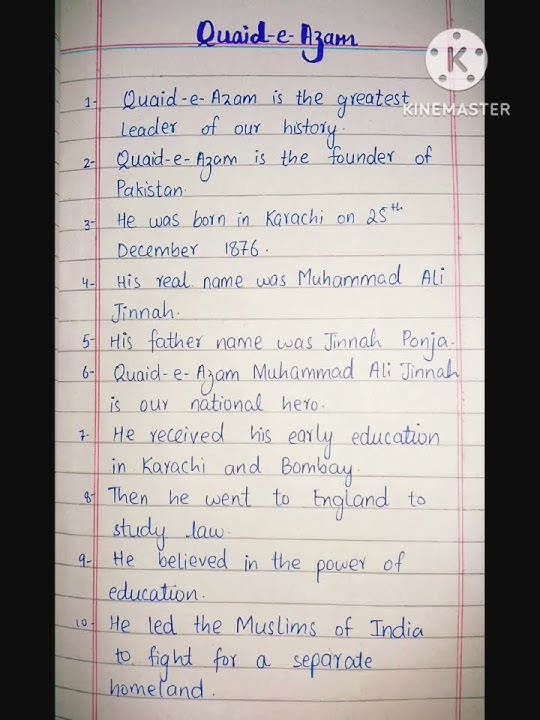 Quaid-e-Azam
K
KINEMASTER
1- Quaid-e-Azam is the greatest
Leader of our history.
2- Quaid-e-Azam is the founder of
Pakistan.
3- He was born in Karachi on 25th
December 1876.
4- His real name was Muhammad Ali
Jinnah.
5- His father name was Jinnah Ponja.
6- Quaid-e-Azam Muhammad Ali Jinnah
is our national hero.
7- He received his early education
in Karachi and Bombay.
8- Then he went to England to
study law.
9- He believed in the power of
education.
10- He led the Muslims of India
to fight for a separate
homeland.